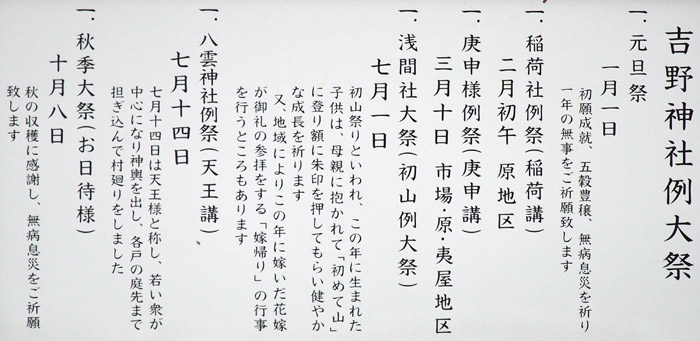 吉野神社例大祭
一.元旦祭
一月一日
初願成就、五穀豊穣、無病息災を祈り
一年の無事をご祈願致します
一.稲荷社例祭(稲荷講)
二月初午 原地区
一.庚申様例祭(庚申講)
三月十日 市場・原・夷屋地区
一.浅間社大祭(初山例大祭)
七月一日
初山祭りといわれ、この年に生まれた
子供は、母親に抱かれて「初めて山」
に登り額に朱印を押してもらい健やか
な成長を祈ります
又、地域によりこの年に嫁いだ花嫁
が御礼の参拝をする「嫁帰り」の行事
を行うところもあります
一.八雲神社例祭(天王講)
七月十四日
七月十四日は天王様と称し、若い衆が
中心になり神輿を出し、各戸の庭先まで
担ぎ込んで村廻りをしました
一.秋季大祭(お日待様)
十月八日
秋の収穫に感謝し、無病息災をご祈願
致します